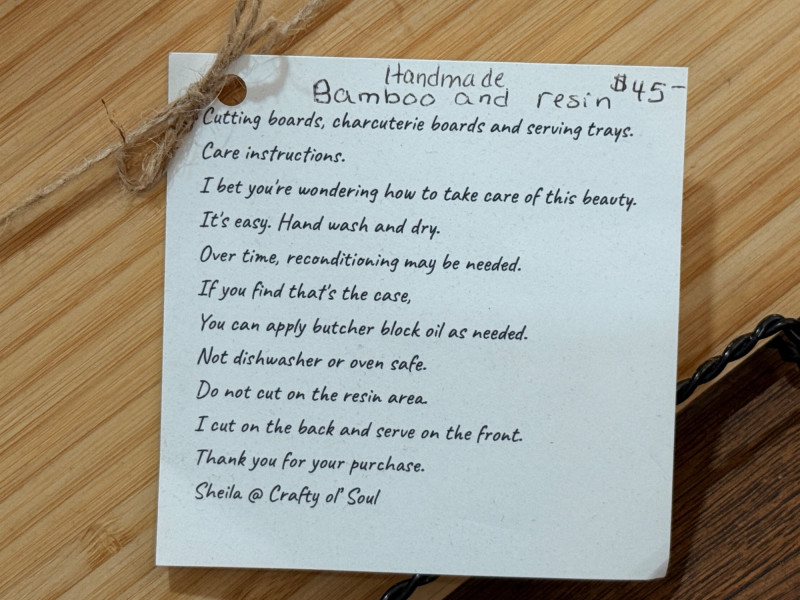 Handmade
Bamboo and resin $45-
Cutting boards, charcuterie boards and serving trays.
Care instructions.
I bet you're wondering how to take care of this beauty.
It's easy. Hand wash and dry.
Over time, reconditioning may be needed.
If you find that's the case,
You can apply butcher block oil as needed.
Not dishwasher or oven safe.
Do not cut on the resin area.
I cut on the back and serve on the front.
Thank you for your purchase.
Sheila @ Crafty ol' Soul